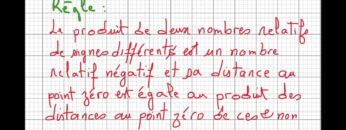 Règle :
Le produit de deux nombres relatifs
de signes différents est un nombre
relatif négatif et sa distance au
point zéro est égale au produit des
distances au point zéro de ces non